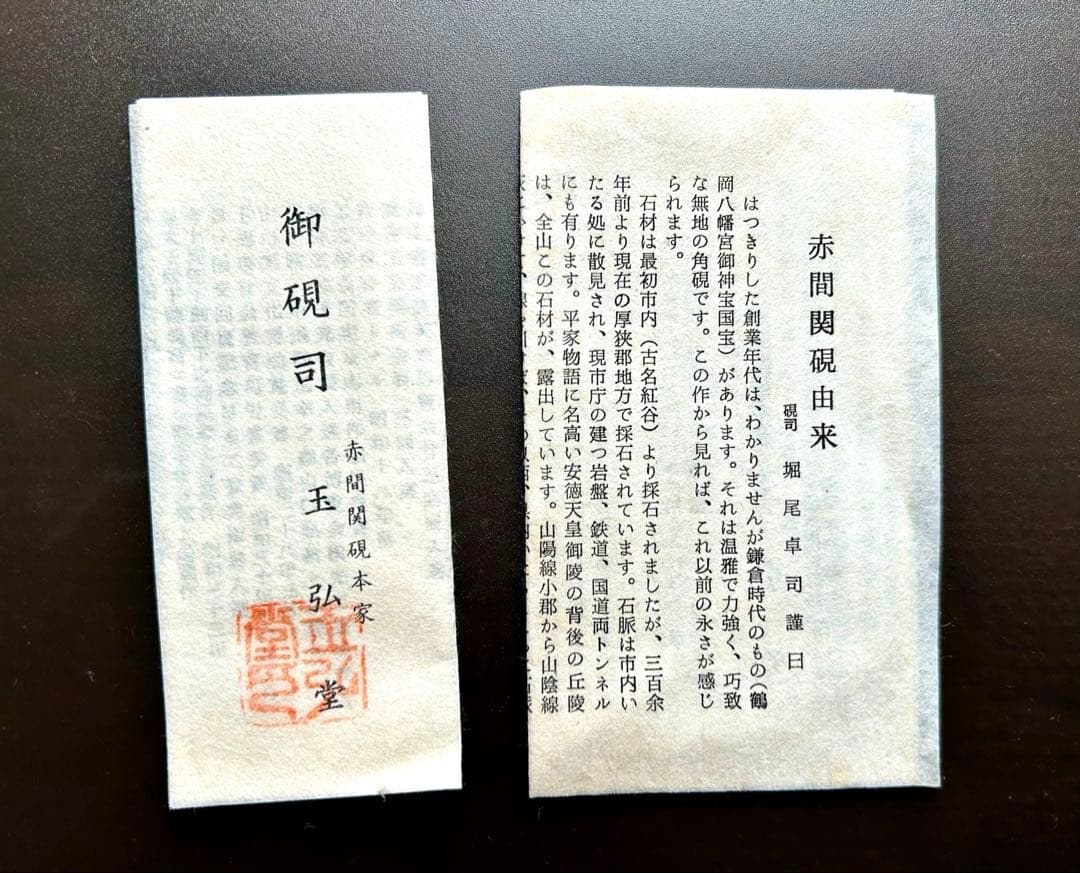 御硯司
赤間関硯本家
玉弘堂
赤間関硯由来
硯司 堀尾卓司謹曰
はつきりした創業年代は、わかりませんが鎌倉時代のもの(鶴
岡八幡宮御神宝国宝)があります。それは温雅で力強く、巧致
な無地の角硯です。この作から見れば、これ以前の永さが感じ
られます。
石材は最初市内(古名紅谷)より採石されましたが、三百余
年前より現在の厚狭郡地方で採石されています。石脈は市内い
たる処に散見され、現市庁の建つ岩盤、鉄道、国道両トンネル
にも有ります。平家物語に名高い安徳天皇御陵の背後の丘陵
は、全山この石材が、露出しています。山陽線小郡から山陰線